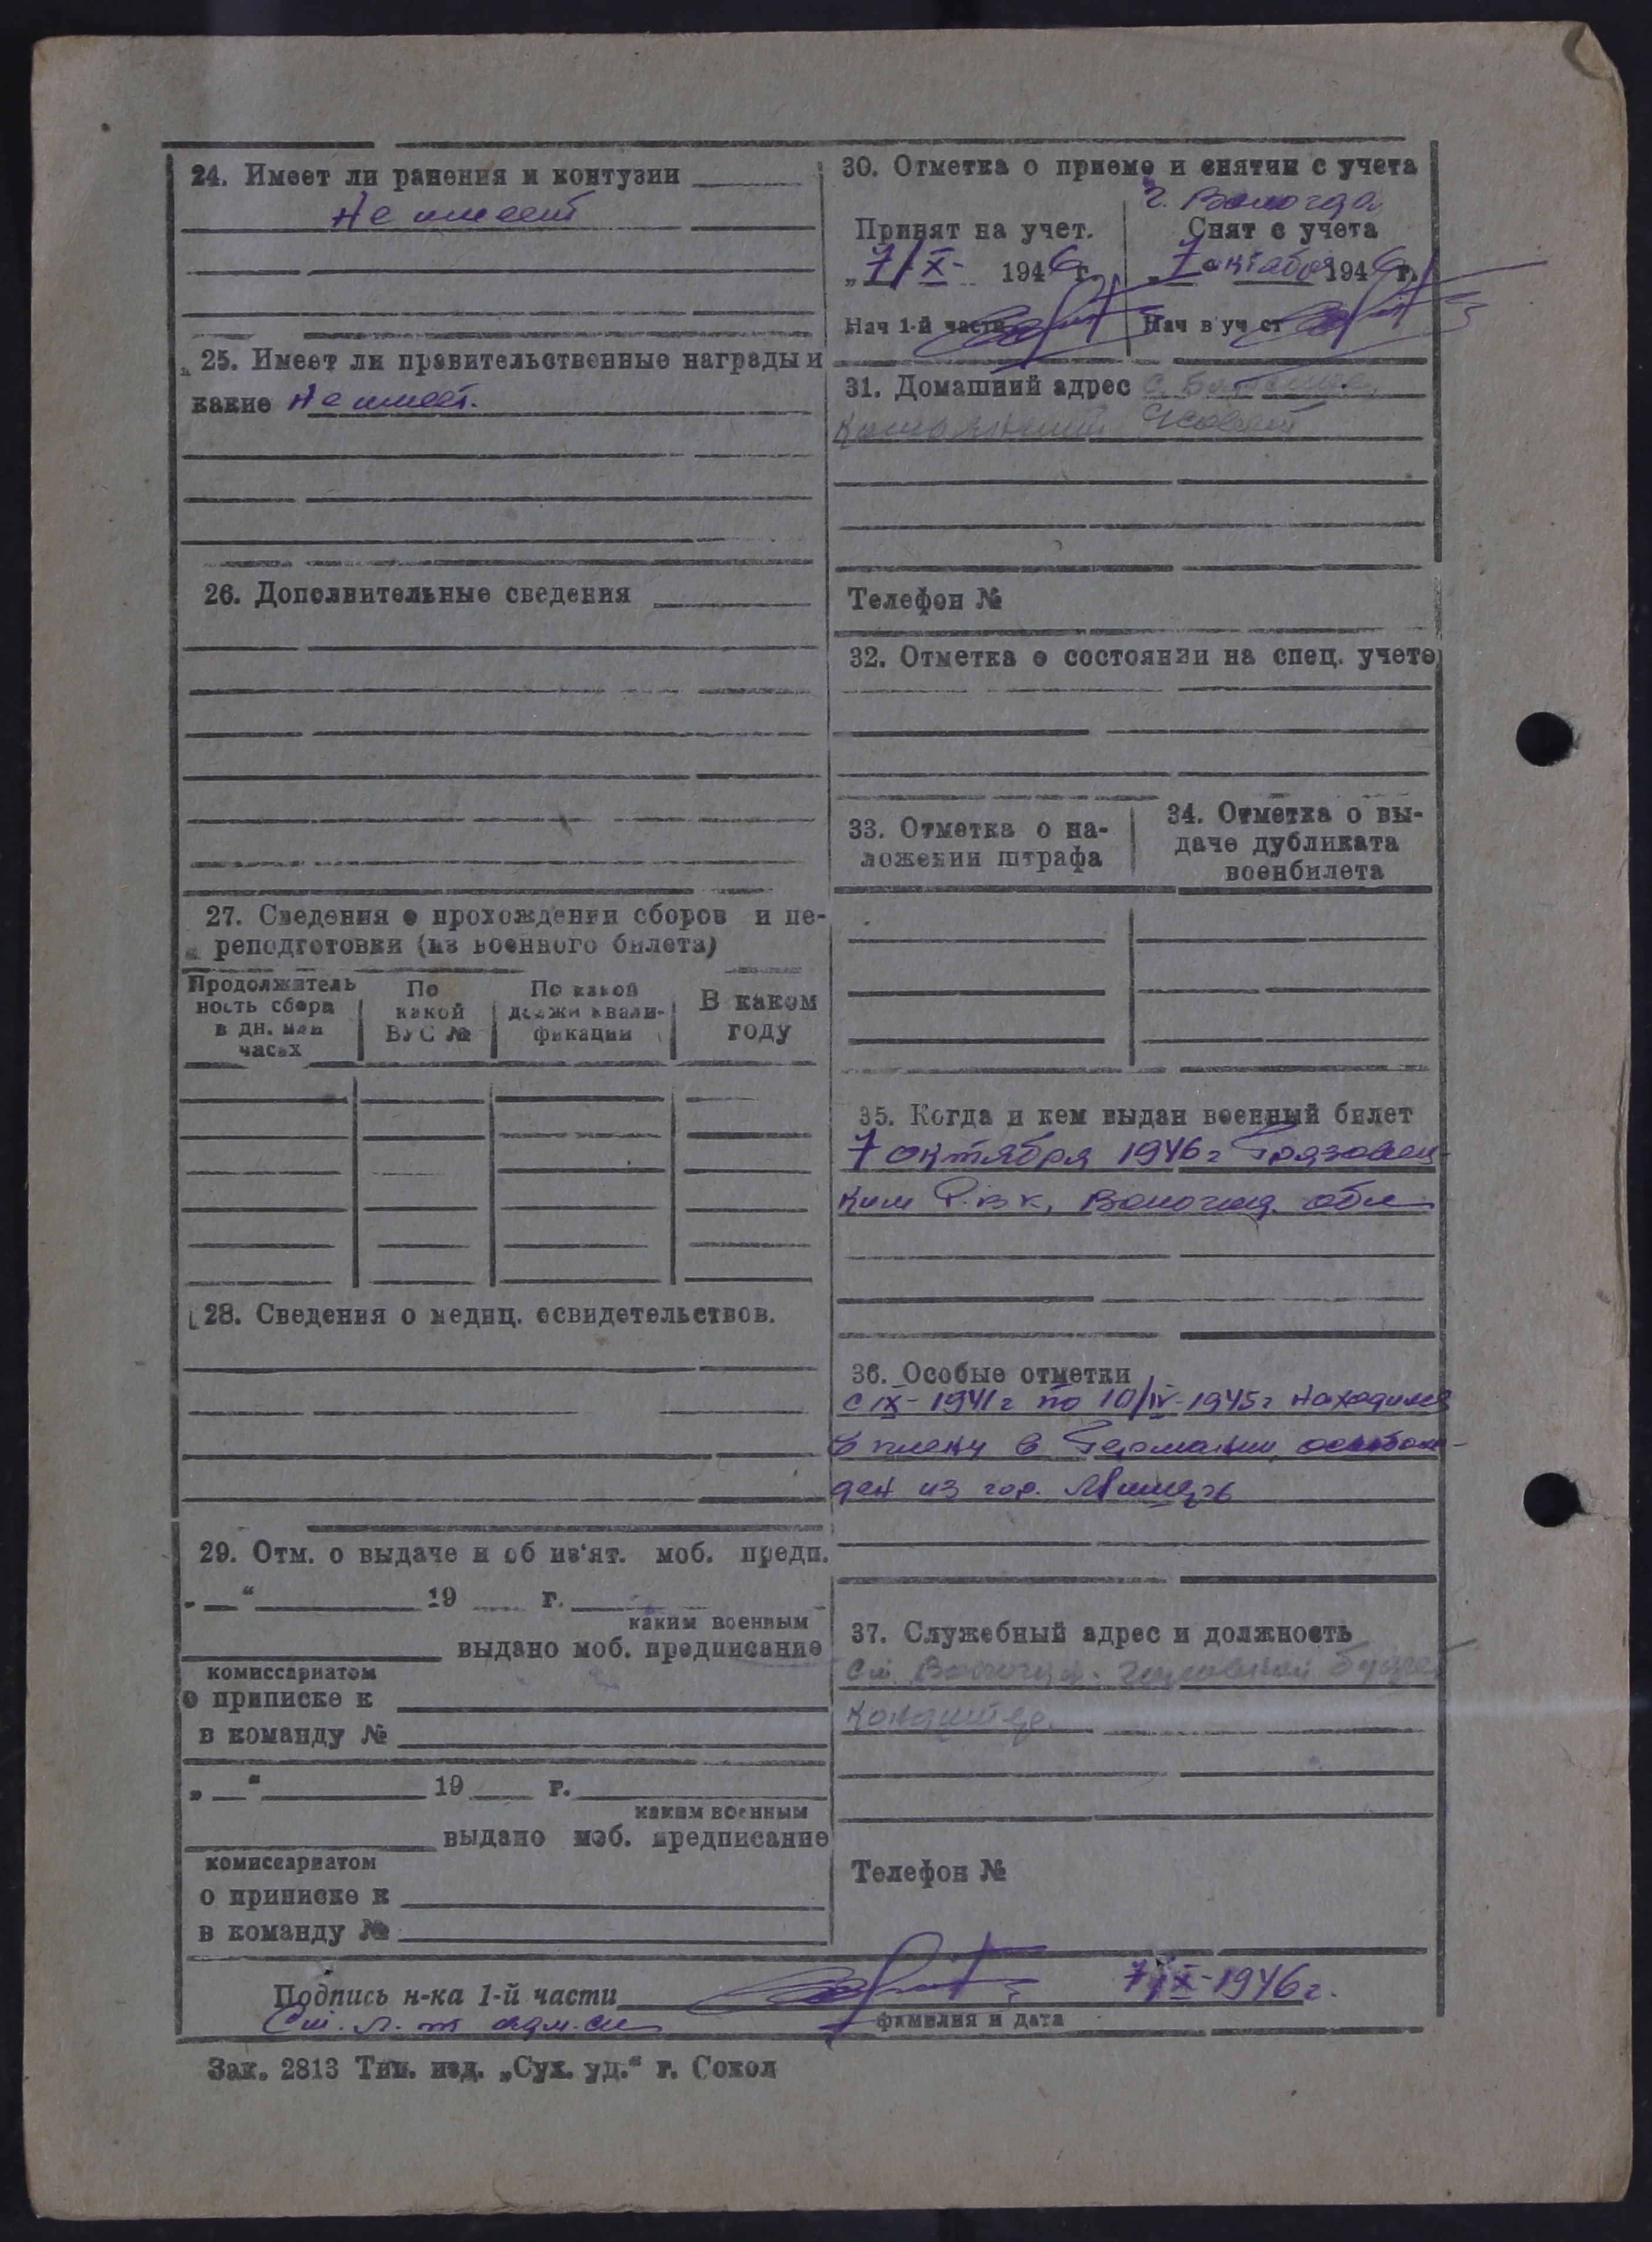 24. Имеет ли ранения и контузии
Не имеет
25. Имеет ли правительственные награды и
какие Не имеет.
26. Дополнительные сведения
27. Сведения о прохождении сборов и пе-
реподготовки (из военного билета)
Продолжитель
ность сбора
в дн. или
часах
По
какой
ВУС №
По какой
должн квали-
фикации
В каком
году
28. Сведения о медиц. освидетельствов.
29. Отм. о выдаче и об из'ят. моб. предп.
„ “ 19 г.
каким военным
выдано моб. предписание
комиссариатом
о приписке к
в команду №
„ “ 19 г.
каким военным
выдано моб. предписание
комиссариатом
о приписке к
в команду №
30. Отметка о приеме и снятии с учета
г. Вологда
Принят на учет.
„7/X- 1946 г.
Нач 1-й части
Снят с учета
„7 октября 1946 г.
Нач в уч ст
31. Домашний адрес с.
Телефон №
32. Отметка о состоянии на спец. учете
33. Отметка о на-
ложении штрафа
34. Отметка о вы-
даче дубликата
военбилета
35. Когда и кем выдан военный билет
7 октября 1946 г Грязовец-
ким Р.В.К, Вологод. обл
36. Особые отметки
с IX-1941 г по 10/IV-1945 г находился
в плену в Германии, освобож-
ден из гор.
37. Служебный адрес и должность
ст. Вологда.
Телефон №
Подпись н-ка 1-й части
7/X-1946 г.
Ст. л-т адм. сл
фамилия и дата
Зак. 2813 Тип. изд. „Сух. уд.“ г. Сокол